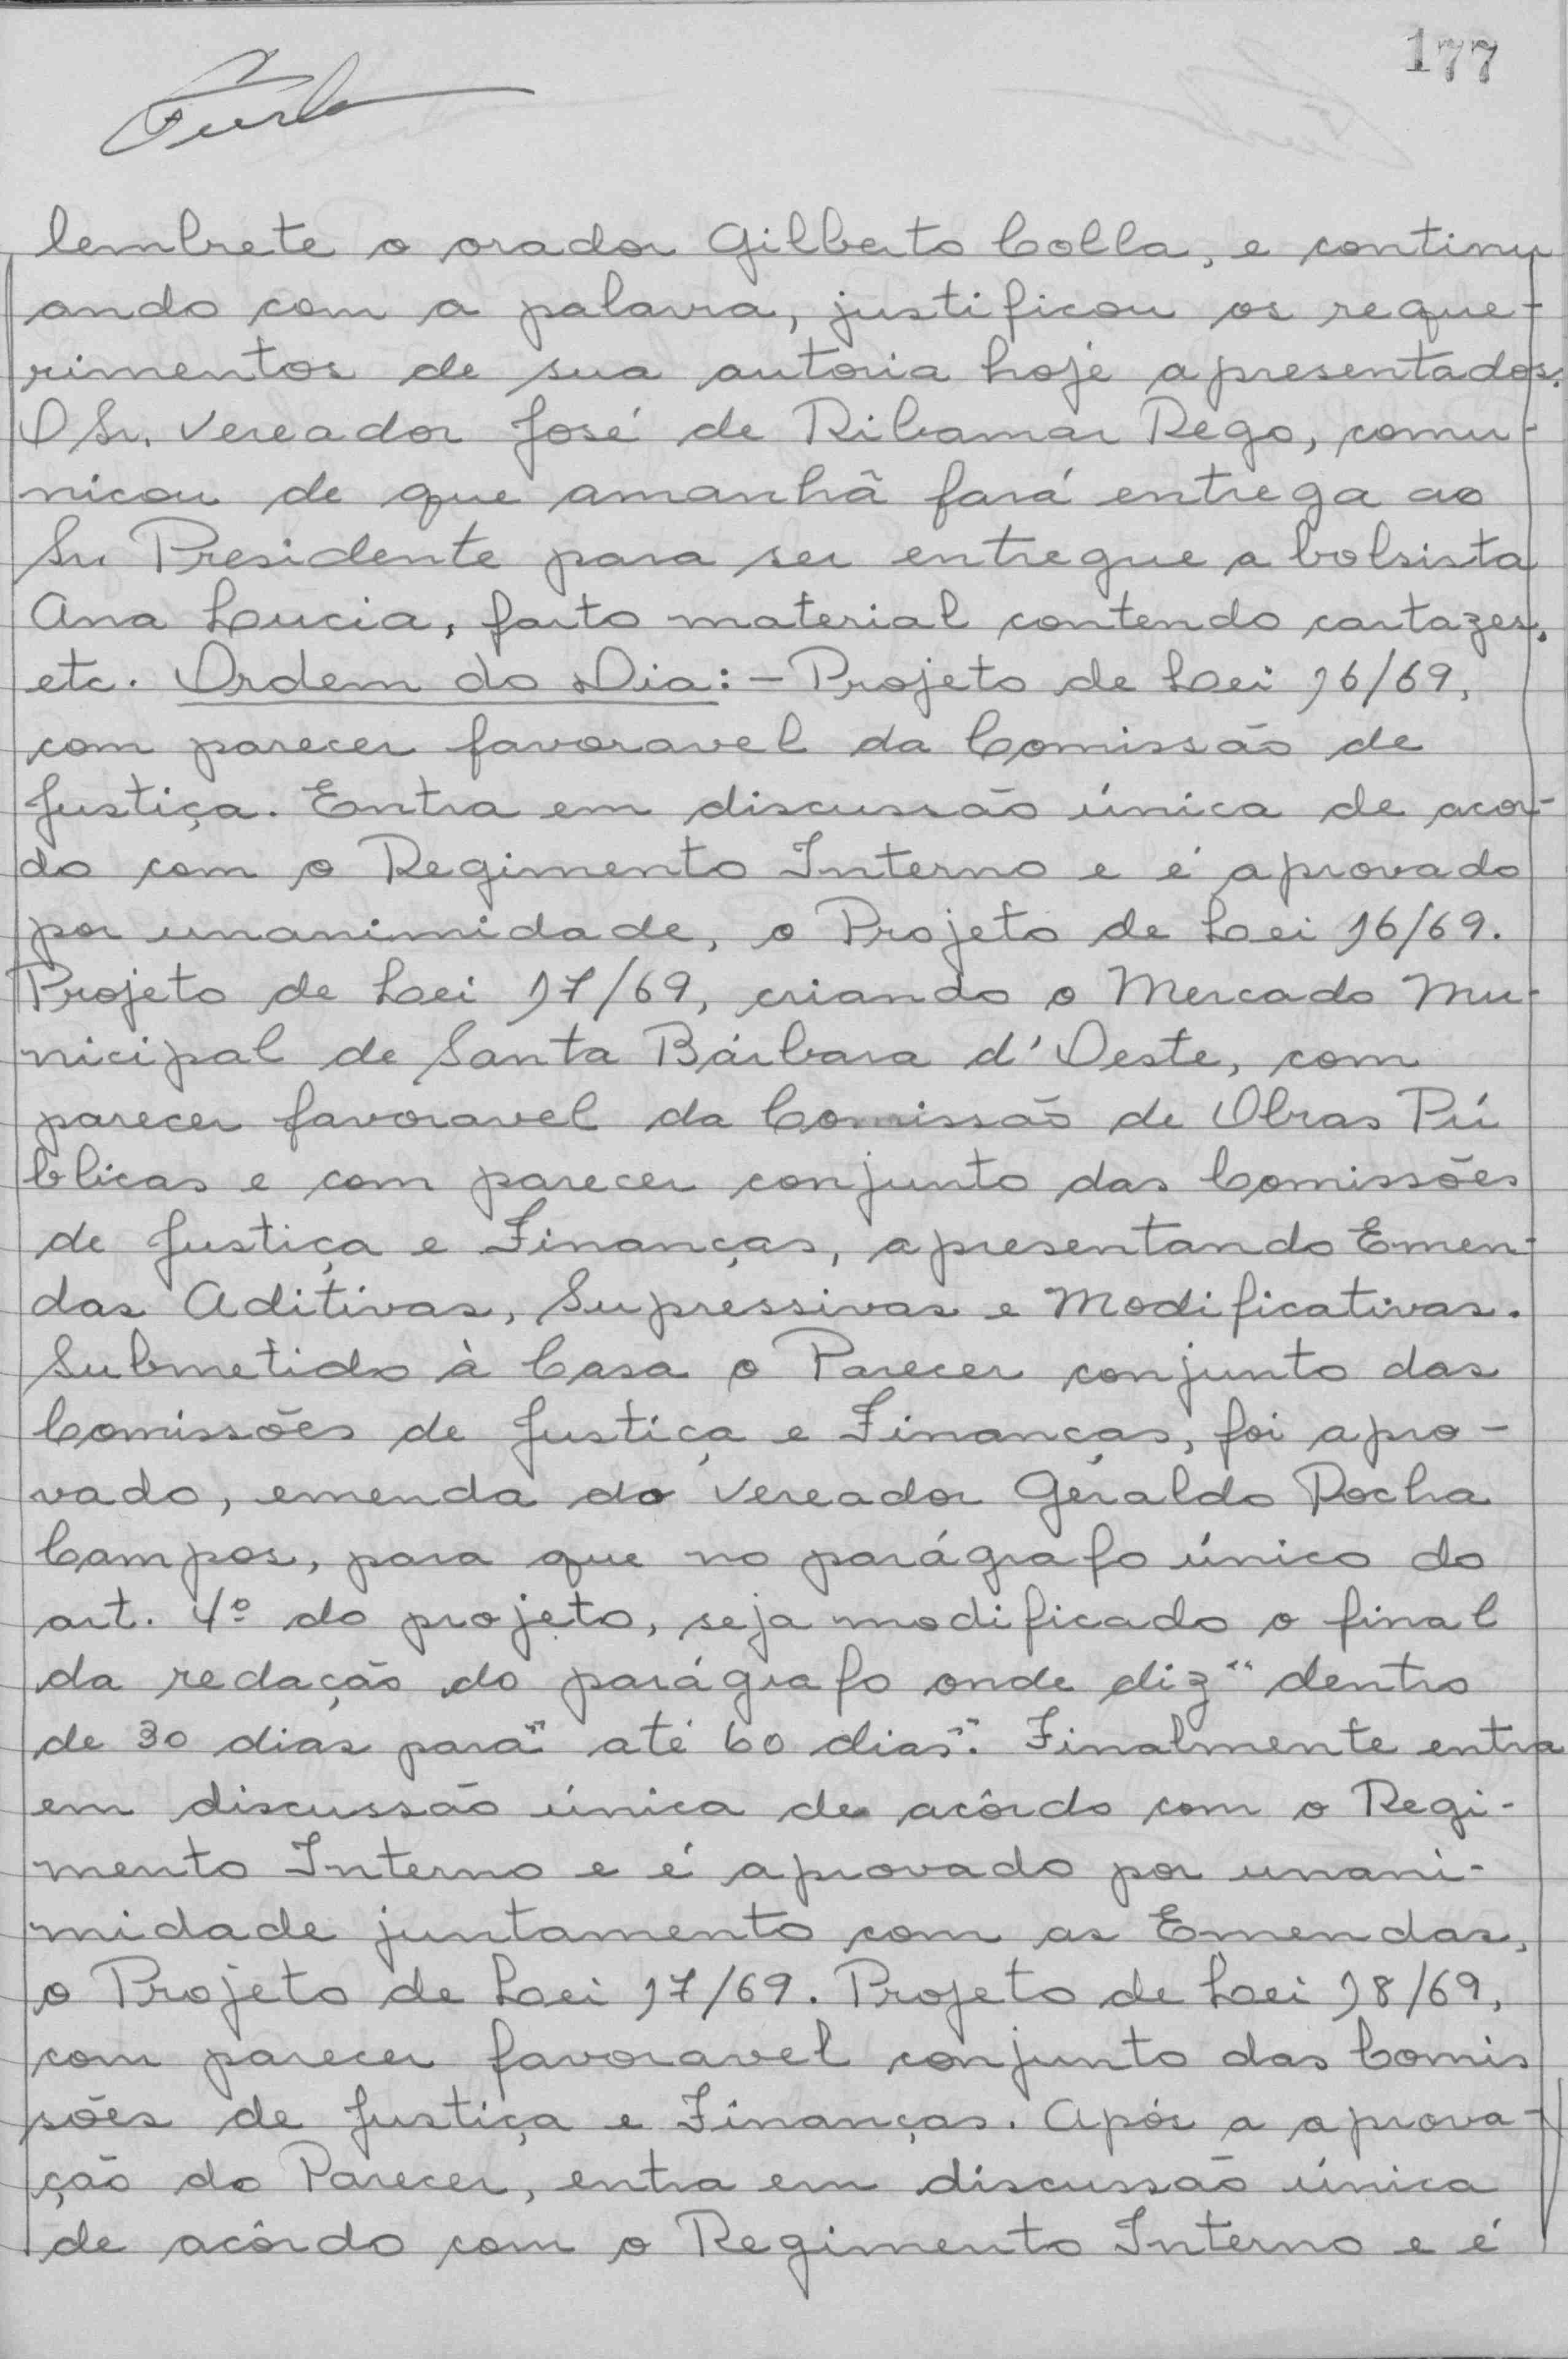 177
lembrete o orador Gilberto Colla, e continu
ando com a palavra, justificou os reque-
rimentos de sua autoria hoje apresentados.
O Sr. Vereador José de Ribamar Rego, comu-
nicou de que amanhã fará entrega ao
Sr. Presidente para ser entregue a bolsista
Ana Lucia, farto material contendo cartazes,
etc. Ordem do Dia: - Projeto de Lei 16/69,
com parecer favoravel da Comissão de
Justiça. Entra em discussão única de acor-
do com o Regimento Interno e é aprovado
por unanimidade, o Projeto de Lei 16/69.
Projeto de Lei 17/69, criando o Mercado Mu-
nicipal de Santa Bárbara d'Oeste, com
parecer favoravel da Comissão de Obras Pú
blicas e com parecer conjunto das Comissões
de Justiça e Finanças, apresentando Emen-
das Aditivas, Supressivas e Modificativas.
Submetido à Casa o Parecer conjunto das
Comissões de Justiça e Finanças, foi apro-
vado, emenda do Vereador Geraldo Rocha
Campos, para que no parágrafo único do
art. 4º do projeto, seja modificado o final
da redação do parágrafo onde diz "dentro
de 30 dias para" até 60 dias". Finalmente entra
em discussão única de acôrdo com o Regi-
mento Interno e é aprovado por unani-
midade juntamento com as Emendas,
o Projeto de Lei 17/69. Projeto de Lei 18/69,
com parecer favoravel conjunto das Comis
sões de Justiça e Finanças. Após a aprova-
ção do Parecer, entra em discussão única
de acôrdo com o Regimento Interno e é